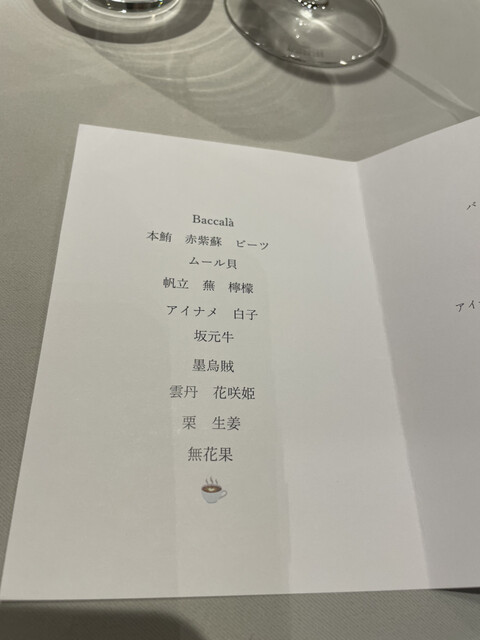 Baccalà
本鮪　赤紫蘇　ビーツ
ムール貝
帆立　蕪　檸檬
アイナメ　白子
坂元牛
墨烏賊
雲丹　花咲姫
栗　生姜
無花果
パ
アイ